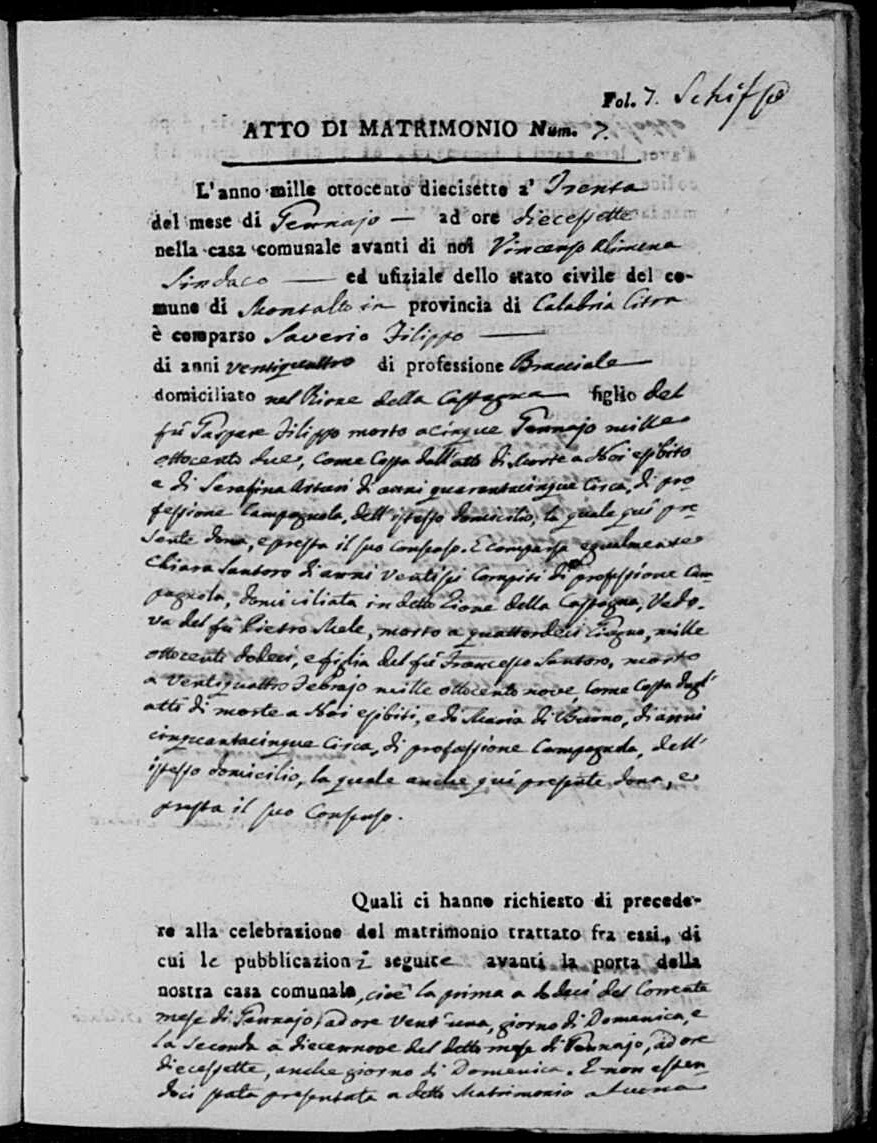 Fol. 7. Schifo
ATTO DI MATRIMONIO Num. 7.
L'anno mille ottocento diecisette a' Trenta
del mese di Gennajo — ad ore diecessette
nella casa comunale avanti di noi Vincenzo Alimena
Sindaco — ed ufiziale dello stato civile del co-
mune di Montalto in provincia di Calabria Citra
è comparso Saverio Filippo —
di anni ventiquattro di professione Bracciale
domiciliato nel Rione della Castagna figlio del
fù Gaspare Filippo morto a cinque Gennajo mille
ottocento due, come Costa dall'atto di Morte a Noi esibito
e di Serafina di anni quarantacinque Circa, di pro-
fessione Campagnola, dell'istesso domicilio, la quale quì pre-
sente dona, e presta il suo Consenso. E comparsa egualmente
Chiara Santoro di anni Ventisei Compiti di professione Cam-
pagnola, domiciliata in detto Rione della Castagna, Vedo-
va del fù Pietro Mele, morto a quattordeci Giugno, mille
ottocento dodeci, e figlia del fù Francesco Santoro, morto
a Ventiquattro Febrajo mille ottocento nove Come Costa dagl'
atti di morte a Noi esibiti, e di Maria di Buono, di anni
cinquantacinque Circa, di professione Campagnola, dell'
istesso domicilio, la quale anche quì presente dona, e
presta il suo Consenso.
Quali ci hanno richiesto di precede-
re alla celebrazione del matrimonio trattato fra essi, di
cui le pubblicazioni seguite avanti la porta della
nostra casa comunale, cioè la prima a dodeci del Corrente
mese di Gennajo, ad ore Vent'una, giorno di Domenica, e
la Seconda a diecennove del detto mese di Gennajo, ad ore
diecessette, anche giorno di Domenica. E non essen-
doci stata presentata a detto Matrimonio alcuna